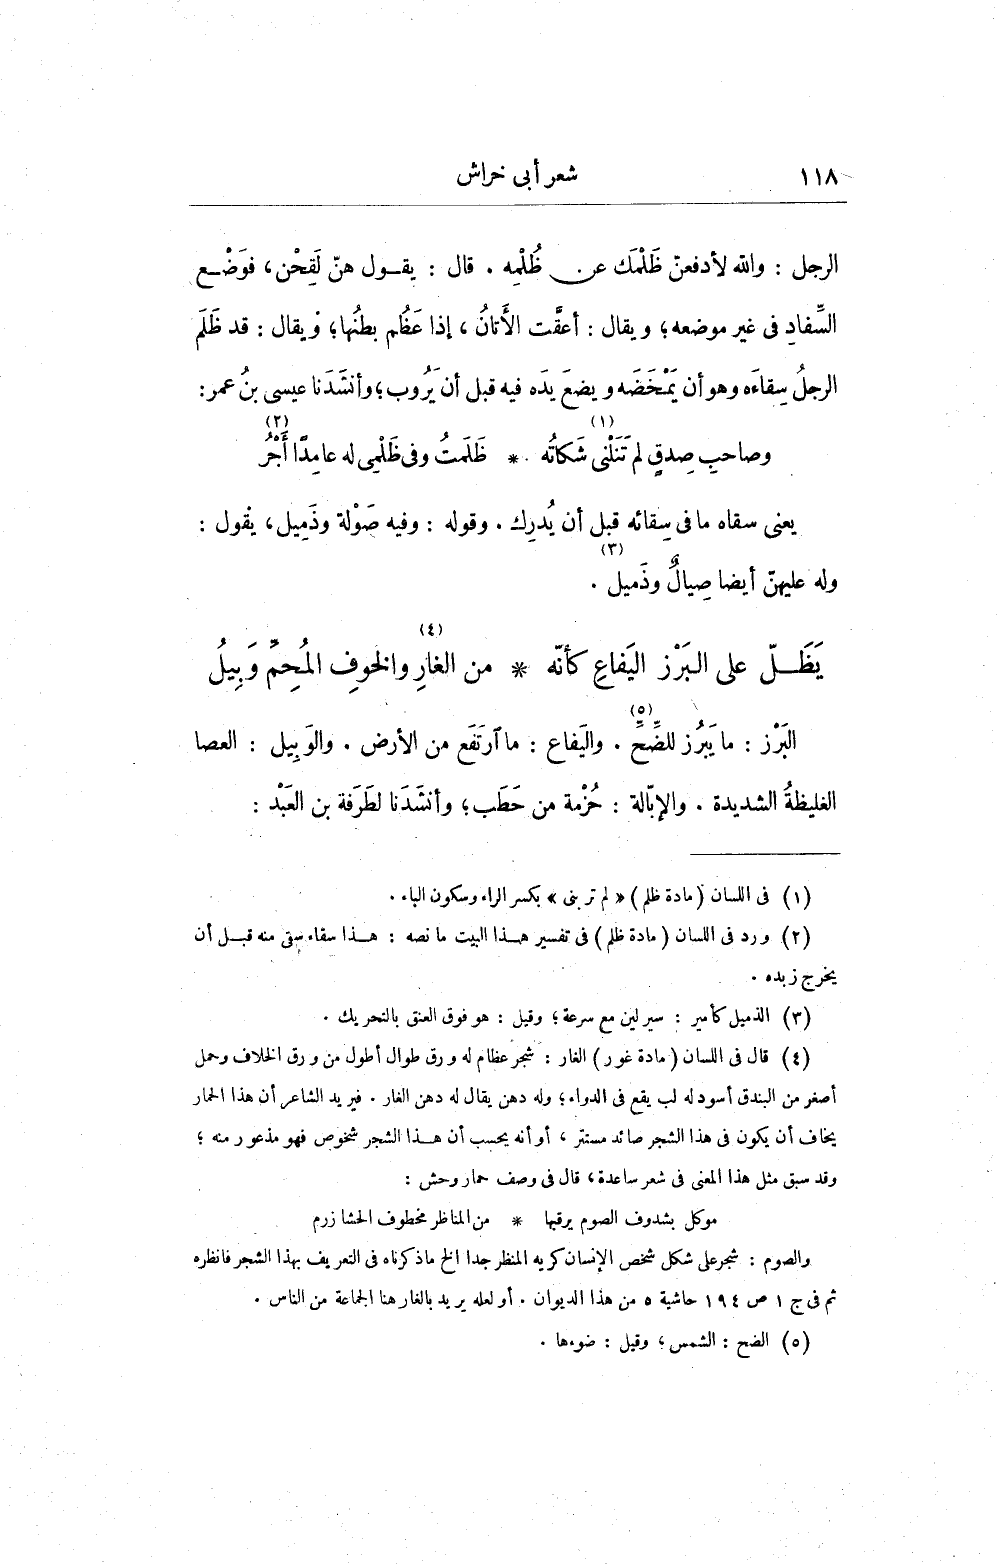 ١١٨ شعر أبى خراش
الرجل : والله لأدفعنّ ظَلْمَك عن ظُلْمِه . قال : يقـول هنّ لَقِحْن، فوَضْـع
السِّفادِ فى غير موضعه؛ ويقال : أعقَّت الأَتانُ ، إذا عَظُم بطنُها؛ ويقال : قد ظَلَم
الرجلُ سِقاءَه وهو أن يَمْخَضَه ويضعَ يدَه فيه قبل أن يَرُوب؛ وأنشَدَنا عيسى بنُ عمر:
وصاحبِ صِدقٍ لم تَنَلْنى شَكاتُه (١) * ظَلَمتُ وفى ظَلْمِى له عامِدًا أَجْرُ (٢)
يعنى سقاه ما فى سِقائه قبل أن يُدرِك . وقوله : وفيه صَوْلة وذَمِيل، يقول :
وله عليهنّ أيضا صِيالٌ وذَميل (٣) .
يَظَــلّ على البَرْز اليَفاعِ كأنّه * من الغارِ (٤) والخوفِ المُحِمِّ وَبِيلُ
البَرْز : ما يَبرُز للضِّحِّ (٥) . واليَفاع : ما آرتَفَع من الأرض . والوَبِيل : العصا
الغليظةُ الشديدة . والإبّالة : حُزْمة من حَطَب؛ وأنشَدَنا لطَرَفة بن العَبْد :
(١) فى اللسان (مادة ظلم) « لم تربنى » بكسر الراء وسكون الباء .
(٢) ورد فى اللسان (مادة ظلم) فى تفسير هــذا البيت ما نصه : هــذا سقاء سقى منه قبـل أن
يخرج زبده .
(٣) الذميل كأمير : سير لين مع سرعة؛ وقيل : هو فوق العنق بالتحريك .
(٤) قال فى اللسان (مادة غور) الغار : شجر عظام له ورق طوال أطول من ورق الخلاف وحمل
أصغر من البندق أسود له لب يقع فى الدواء؛ وله دهن يقال له دهن الغار . فيريد الشاعر أن هذا الحمار
يخاف أن يكون فى هذا الشجر صائد مستتر ، أو أنه يحسب أن هــذا الشجر شخوص فهو مذعور منه ؛
وقد سبق مثل هذا المعنى فى شعر ساعدة، قال فى وصف حمار وحش :
موكل بشدوف الصوم يرقبها * من المناظر مخطوف الحشا زرم
والصوم : شجر على شكل شخص الإنسان كريه المنظر جدا الخ ما ذكرناه فى التعريف بهذا الشجر فانظره
ثم فى ج ١ ص ١٩٤ حاشية ٥ من هذا الديوان . أو لعله يريد بالغار هنا الجماعة من الناس .
(٥) الضح : الشمس؛ وقيل : ضوءها .